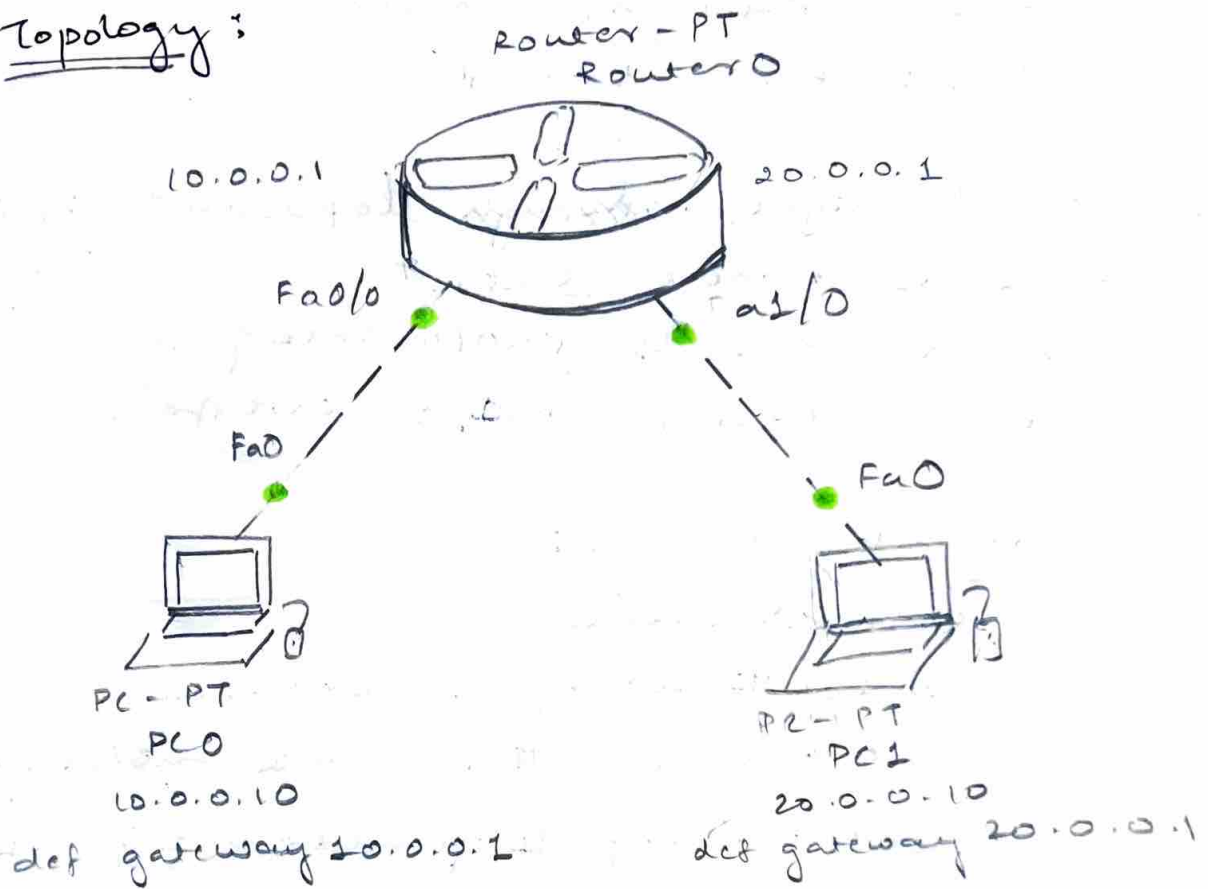 Topology :
Router - PT
Router0
10.0.0.1
20.0.0.1
Fa0/0
a1/0
Fa0
Fa0
PC - PT
PC0
10.0.0.10
def gateway 10.0.0.1
PC - PT
PC1
20.0.0.10
def gateway 20.0.0.1